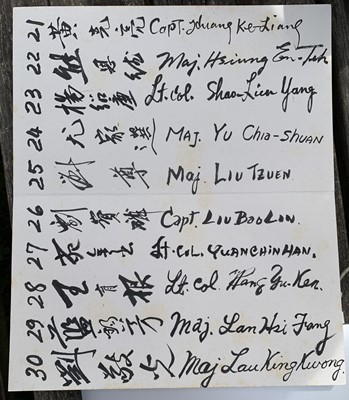 21 黃克亮 Capt. Huang Ke-Liang
22 熊恩德 Maj. Hsiung En-Teh
23 楊紹廉 Lt. Col. Shao-Lien Yang
24 尤家選 MAJ. YU CHIA-SHUAN
25 劉尊 Maj. LIU TZUEN
26 劉寶 Capt. LIU BAO LIN.
27 Lt. COL. YUANCHINHAN.
28 王育根 Lt. Col. Wang Yu-Ken.
29 藍 芳 Maj. Lan Hsi Fang
30 劉敬 Maj Lau King Kwong.